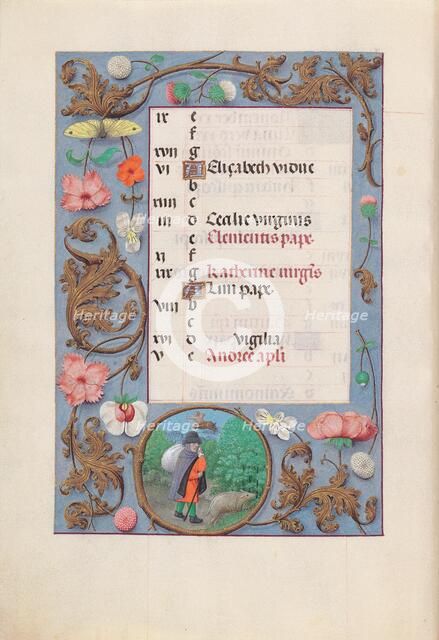 ix e
f
xvii g
vi A Elizabeth vidue
b
xiiii c
iii d Cecilie virginis
e Clementis pape.
xi f
xix g Katherine virgis
A Lini pape.
viii b
c
xvi d vigilia
v e Andree apli
Heritage
Heritage
Heritage
Heritage